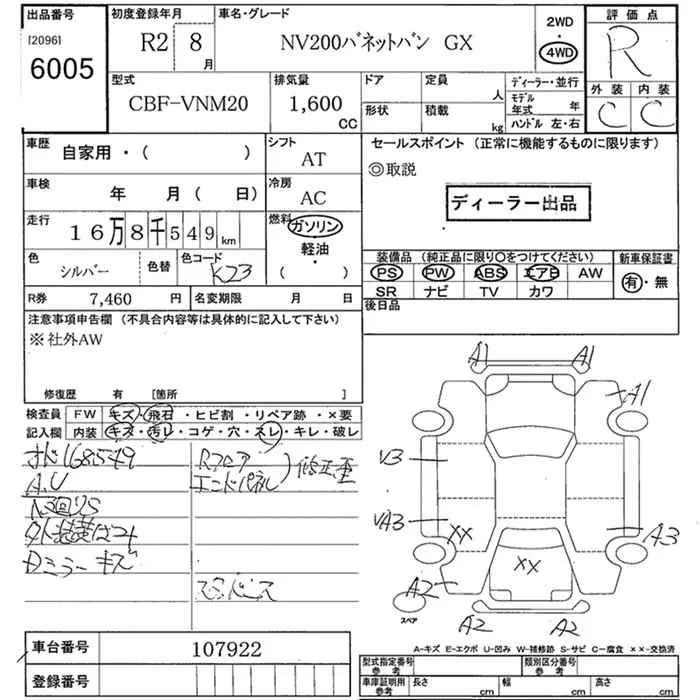 出品番号 初度登録年月 車名・グレード 2WD 評価点
[2096] R2 8月 NV200バネットバン GX 4WD R
6005
型式 排気量 ドア 定員 ディーラー・並行 外装 内装
CBF-VNM20 1,600 CC 人 モデル年式 年 C C
形状 積載 kg ハンドル 左・右
車歴 自家用・( ) シフト AT セールスポイント (正常に機能するものに限ります)
◎取説
車検 年 月( 日) 冷房 AC
ディーラー出品
走行 16万8千549km 燃料 ガソリン
軽油・
( )
色 シルバー 色替 色コード K23
装備品 (純正品に限り○をつけてください) 新車保証書
PS PW ABS エアB AW 有・無
SR ナビ TV カワ
R券 7,460 円 名変期限 月 日 後日品
注意事項申告欄 (不具合内容等は具体的に記入して下さい)
※社外AW
修復歴 有 [箇所 ]
検査員 FW キズ・飛石・ヒビ割・リペア跡・×要
記入欄 内装 キズ・汚レ・コゲ・穴・スレ・キレ・破レ
168549 Rフロア
A.U エンドパネル 修正歪
Dミラーキズ
A1 A1
A1
V3
VA3 XX A3
XX
A2
スペア
A2 A2
A-キズ E-エクボ U-凹み W-補修跡 S-サビ C-腐食 ××-交換済
車台番号 107922
型式指定番号 参考 類別区分番号 参考
登録番号
車庫証明用 参考 長さ cm 幅 cm 高さ cm